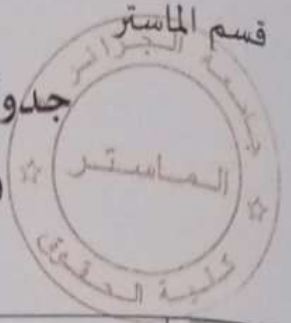 قسم الماستر
جدو
جامعة الجزائر
الماستر
كلية الحقوق